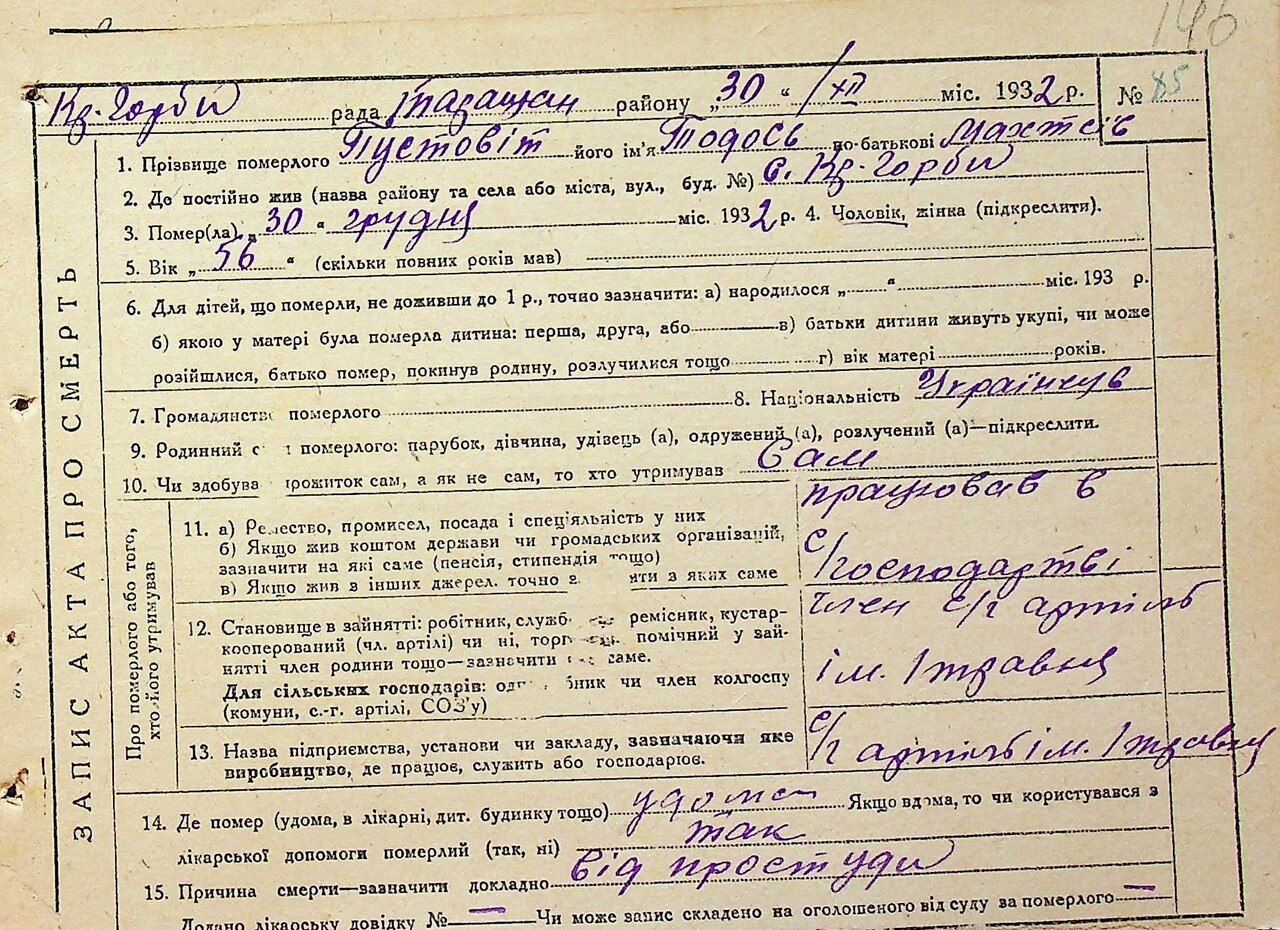 146
Кр.-Горби рада Таращан району „30“ /XII міс. 1932 р. № 85
1. Прізвище померлого Пустовіт його ім'я Тодось по-батькові
2. Де постійно жив (назва району та села або міста, вул., буд. №) с. Кр.-Горби
3. Помер(ла) „30“ грудня міс. 1932 р. 4. Чоловік, жінка (підкреслити).
5. Вік „56“ (скільки повних років мав)
6. Для дітей, що померли, не доживши до 1 р., точно зазначити: а) народилося „ “ міс. 193 р.
б) якою у матері була померла дитина: перша, друга, або в) батьки дитини живуть укупі, чи може
розійшлися, батько помер, покинув родину, розлучилися тощо г) вік матері років.
7. Громадянств померлого 8. Національність
9. Родинний с померлого: парубок, дівчина, удівець (а), одружений (а), розлучений (а)—підкреслити.
10. Чи здобува прожиток сам, а як не сам, то хто утримував Сам
ЗАПИС АКТА ПРО СМЕРТЬ
Про померлого або того,
хто його утримував
11. а) Ре есство, промисел, посада і спеціяльність у них
б) Якщо жив коштом держави чи громадських організацій,
зазначити на які саме (пенсія, стипендія тощо)
в) Якщо жив з інших джерел. точно з яти з яких саме
працював в
с/господартві
12. Становище в зайнятті: робітник, служб ремісник, кустар-
кооперований (чл. артілі) чи ні, торг помічний у зай-
нятті член родини тощо—зазначити саме.
Для сільських господарів: од бник чи член колгоспу
(комуни, с.-г. артілі, СОЗ'у)
член с/г артіль
ім. 1 травня
13. Назва підприємства, установи чи закладу, зазначаючи яке
виробництво, де працює, служить або господарює.
с/г артіль ім. 1 травня
14. Де помер (удома, в лікарні, дит. будинку тощо) удома Якщо вдома, то чи користувався з
лікарської допомоги померлий (так, ні) так
15. Причина смерти—зазначити докладно від простуди
Додано лікарську довідку № — Чи може запис складено на оголошеного від суду за померлого —